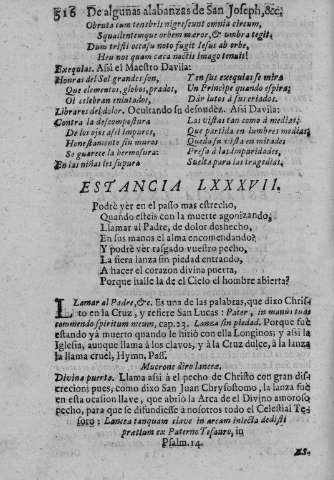 516 De algunas alabanzas de San Joseph, &c.
Obruta cum tenebris nigrescunt omnia circum,
Squallentemque orbem mœror, & umbra tegit,
Dum tristi occasu noto fugit Iesus ab orbe,
Heu not quam cæca noctis imago tenuit!
Exequias. Assi el Maestro Davila:
Honras del Sol grandes son,
Que elementos, globos, prados,
Oi celebran enlutados,
Y en sus exequias se mira
Un Principe quando espira;
Dàr lutos à sus criados.
Librarea del dolor. Ocultando su desnudèz. Assi Davila:
Contra la descompostura
De los ojos assi impuros,
Honestamente sin muros
Se guarece la hermosura:
En las niñas les supura
Las vistas tan como à medias,
Que partida en lumbres medias,
Queda su vista en mitades
Presa à las impuridades,
Suelta para las tragedias.
ESTANCIA LXXXVII.
Podrè vèr en el passo mas estrecho,
Quando esteis con la muerte agonizando,
Llamar al Padre, de dolor deshecho,
En sus manos el alma encomendando?
Y podrè vèr rasgado vuestro pecho,
La fiera lanza sin piedad entrando,
A hacer el corazon divina puerta,
Porque halle la de el Cielo el hombre abierta?
LLamar al Padre, &c. Es una de las palabras, que dixo Chris-
to en la Cruz, y refiere San Lucas: Pater, in manus tuas
commendo spiritum meum, cap. 23. Lanza sin piedad. Porque fuè
estando yà muerto quando le hiriò con ella Longinos; y assi la
Iglesia, aunque llama à los clavos, y à la Cruz dulce, à la lanza
la llama cruel, Hymn. Pass.
Mucrone diro lanceæ.
Divina puerta. Llama assi à el pecho de Christo con gran dis-
crecion; pues, como dixo San Juan Chrysostomo, la lanza fuè
en esta ocasion llave, que abriò la Arca de el Divino amoroso
pecho, para que se difundiesse à nosotros todo el Celestial Te-
soro: Lancea tanquam clave in arcam iniecta dedisti
prætium ex Paterno Tesauro, in
Psalm. 14.